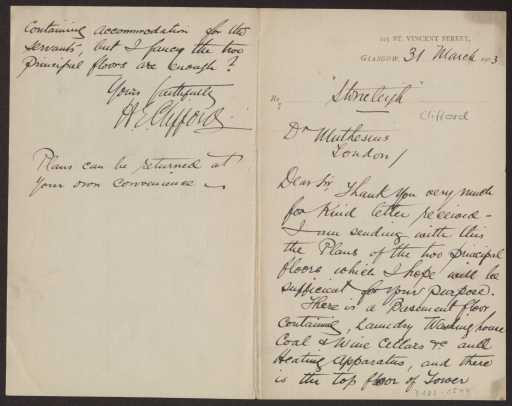 ST. VINCENT STREET,
GLASGOW, 31 March 1903
Re/
"Stoneleigh"
Clifford
Dr Muthesius
London/
Dear Sir,
Thank you very much
for kind letter received –
I am sending with this
the Plans of the two principal
floors which I hope will be
sufficient for your purpose.
There is a Basement floor
containing, Laundry Washing house
Coal & Wine Cellars &c and
Heating apparatus, and there
is the top floor of Tower
containing accommodation for the
servants, but I fancy the two
principal floors are enough?
Yours faithfully
H E Clifford
Plans can be returned at
your own convenience